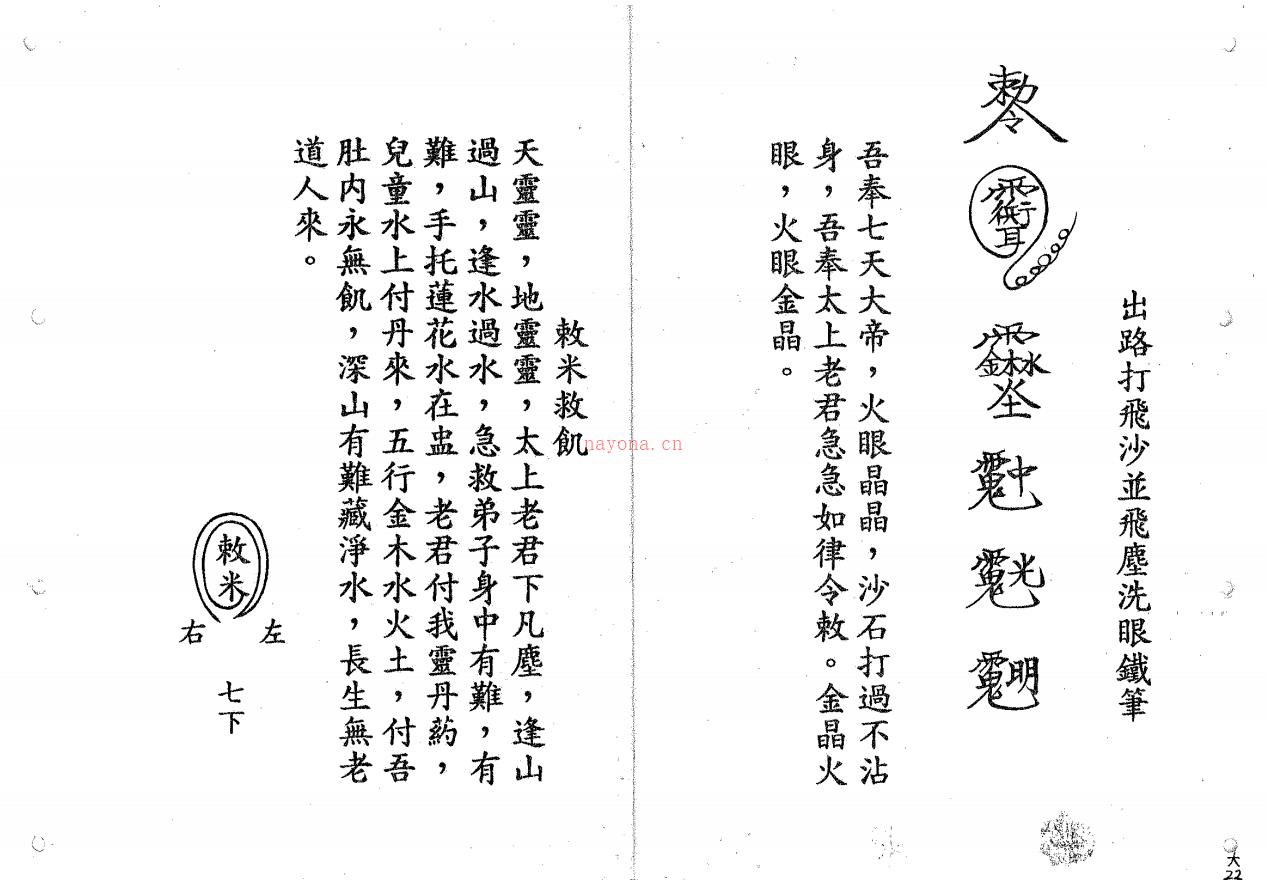 出路打飛沙並飛塵洗眼鐵筆
勅令
吾奉七天大帝，火眼晶晶，沙石打過不沾
身，吾奉太上老君急急如律令敕。金晶火
眼，火眼金晶。
敕米救飢
天靈靈，地靈靈，太上老君下凡塵，逢山
過山，逢水過水，急救弟子身中有難，有
難，手托蓮花水在盅，老君付我靈丹葯，
兒童水上付丹來，五行金木水火土，付吾
肚内永無飢，深山有難藏淨水，長生無老
道人來。
敕米
右 左
七下
nayona.cn
大22